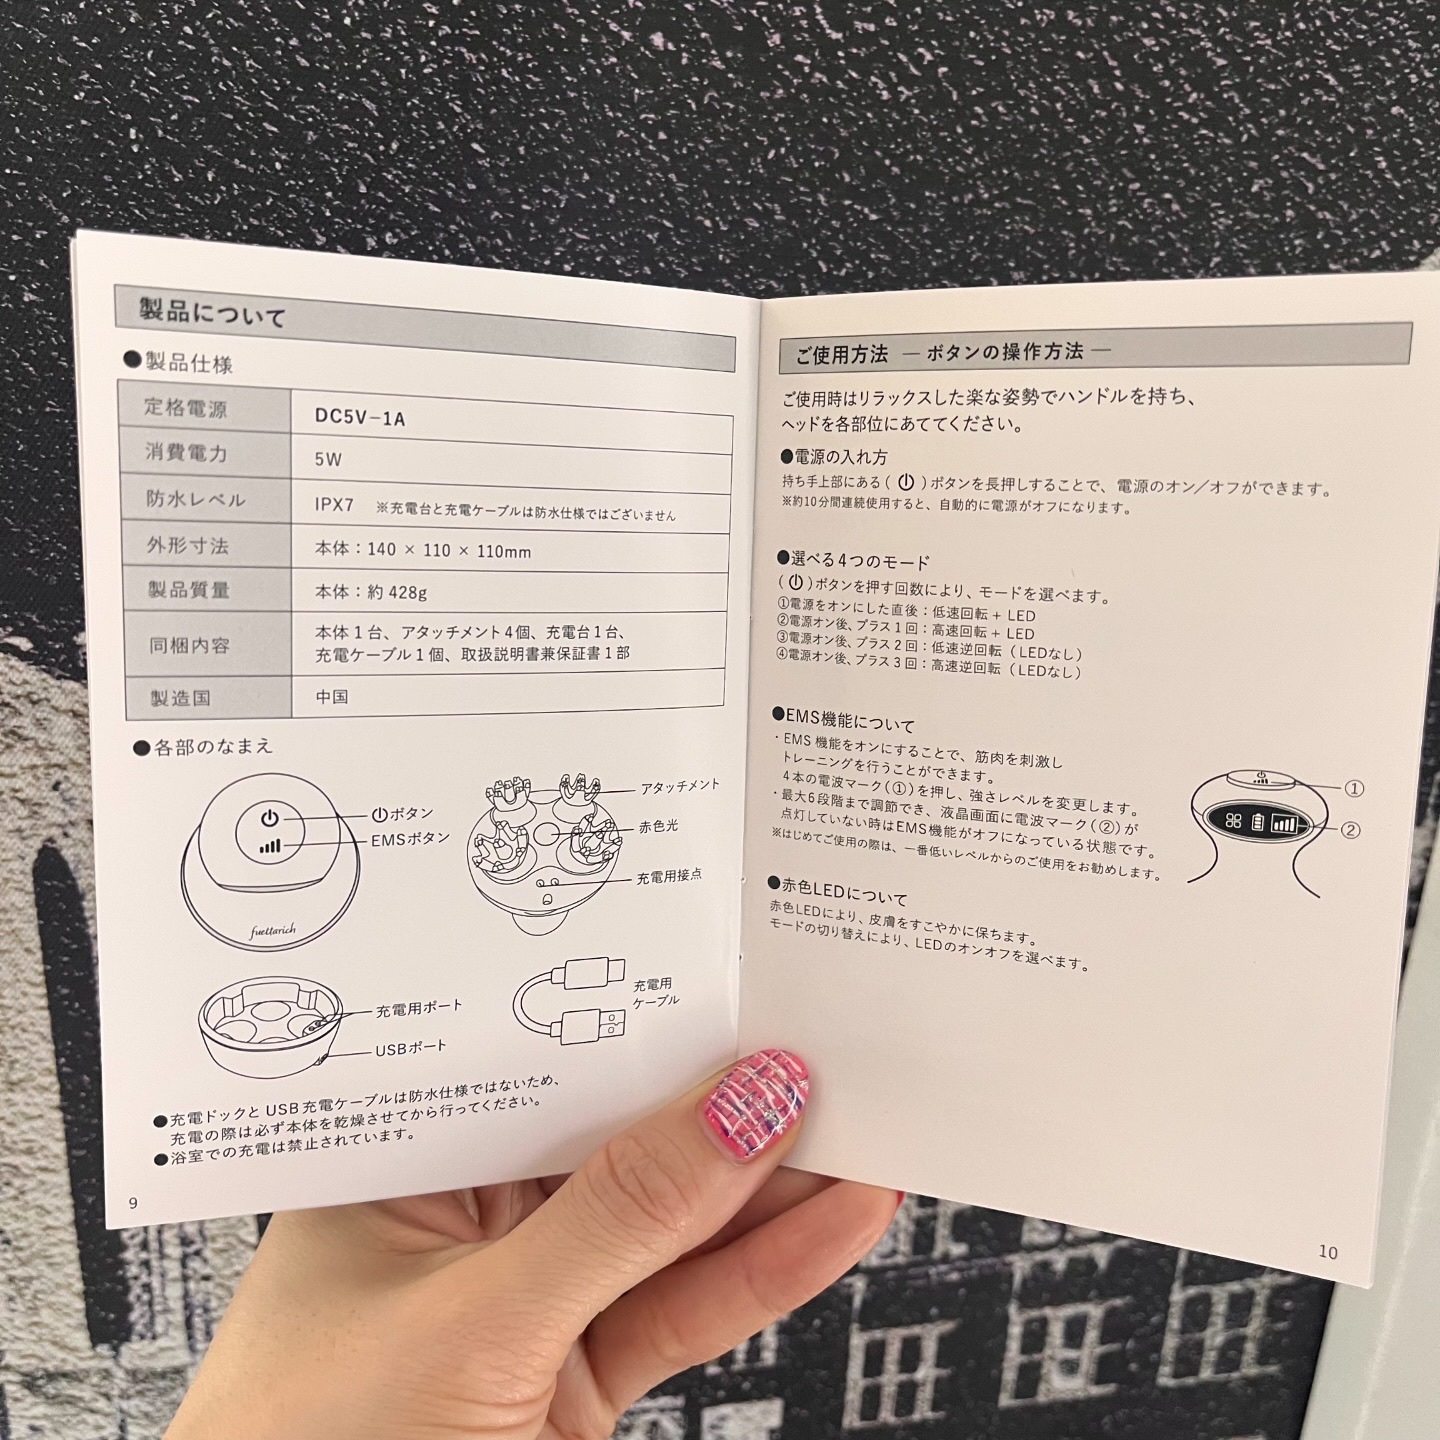 製品について
●製品仕様
定格電源 DC5V−1A
消費電力 5W
防水レベル IPX7 ※充電台と充電ケーブルは防水仕様ではございません
外形寸法 本体：140 × 110 × 110mm
製品質量 本体：約 428g
同梱内容 本体1台、アタッチメント4個、充電台1台、
充電ケーブル1個、取扱説明書兼保証書1部
製造国 中国
●各部のなまえ
⏻ボタン
EMSボタン
fuettarich
アタッチメント
赤色光
充電用接点
充電用ポート
USBポート
充電用
ケーブル
●充電ドックと USB 充電ケーブルは防水仕様ではないため、
充電の際は必ず本体を乾燥させてから行ってください。
●浴室での充電は禁止されています。
9
ご使用方法 ― ボタンの操作方法 ―
ご使用時はリラックスした楽な姿勢でハンドルを持ち、
ヘッドを各部位にあててください。
●電源の入れ方
持ち手上部にある( ⏻ )ボタンを長押しすることで、電源のオン／オフができます。
※約10分間連続使用すると、自動的に電源がオフになります。
●選べる4つのモード
( ⏻ )ボタンを押す回数により、モードを選べます。
①電源をオンにした直後：低速回転 + LED
②電源オン後、プラス1回：高速回転 + LED
③電源オン後、プラス2回：低速逆回転（LEDなし）
④電源オン後、プラス3回：高速逆回転（LEDなし）
●EMS機能について
・EMS 機能をオンにすることで、筋肉を刺激し
トレーニングを行うことができます。
4本の電波マーク(①)を押し、強さレベルを変更します。
・最大6段階まで調節でき、液晶画面に電波マーク(②)が
点灯していない時はEMS機能がオフになっている状態です。
※はじめてご使用の際は、一番低いレベルからのご使用をお勧めします。
①
②
●赤色LEDについて
赤色LEDにより、皮膚をすこやかに保ちます。
モードの切り替えにより、LEDのオンオフを選べます。
10